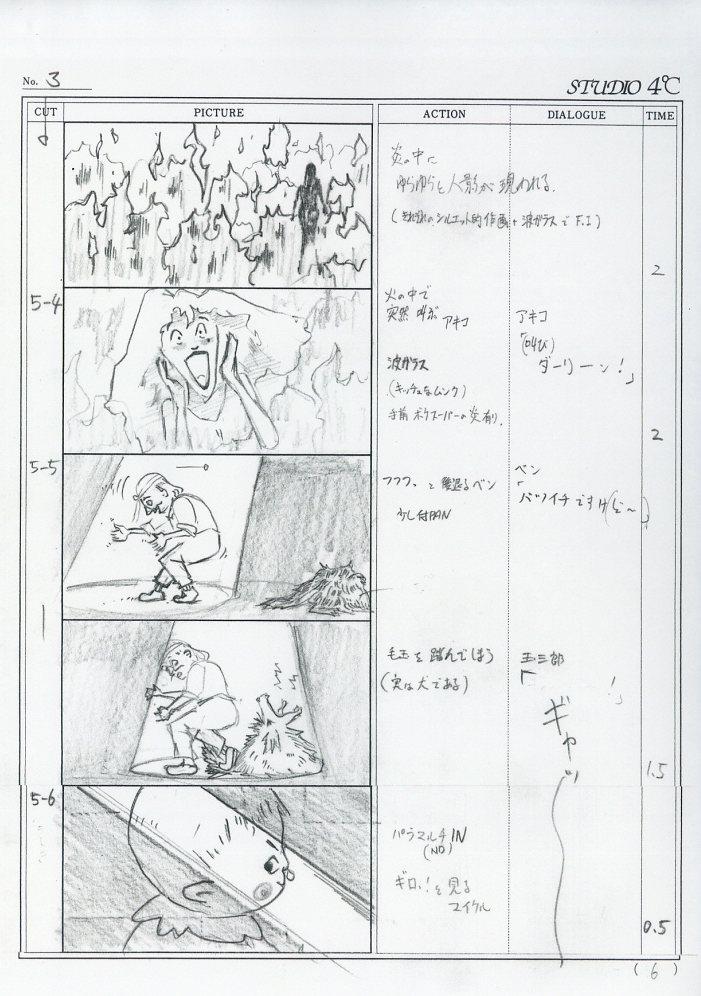 No. 3
STUDIO 4℃
CUT PICTURE ACTION DIALOGUE TIME
炎の中に
ゆらゆらと人影が現われる。
(それぞれのシルエット的作画+波ガラスでF.I)
2
5-4
火の中で
突然叫ぶアキコ
波ガラス
(キッチュなムンク)
手前ボケスーパーの炎有り。
アキコ
「(叫び)
ダーリーン!」
2
5-5
フフフ、と後退るベン
少し付PAN
ベン
「バツイチですけど〜」
毛玉を踏んでしまう
(実は犬である)
玉三郎
「ギャッ!」
1.5
5-6
パラマルチIN
(NO)
ギロッ!を見る
マイケル
0.5
(6)